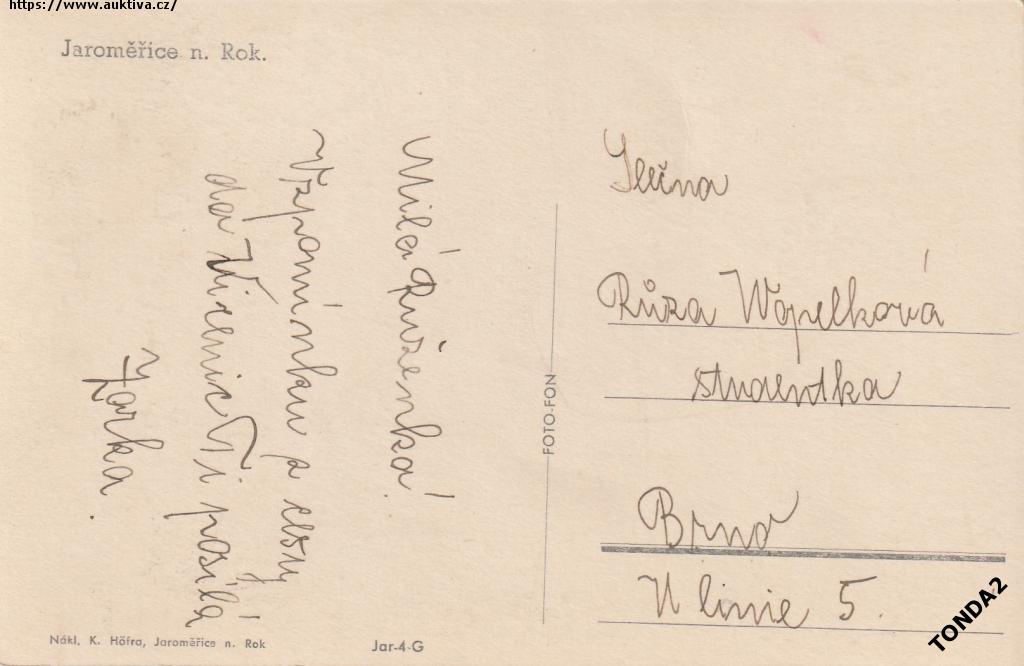 https://www.auktiva.cz/
Jaroměřice n. Rok.
Milá Růženko!
Vzpomínku z cesty
do Vícenic Ti posílá
Jarka.
Slečna
Růza Wopelková
studentka
Brno
U linie 5.
FOTO-FON
Nákl. K. Höfra, Jaroměřice n. Rok
Jar-4-G
TONDA2